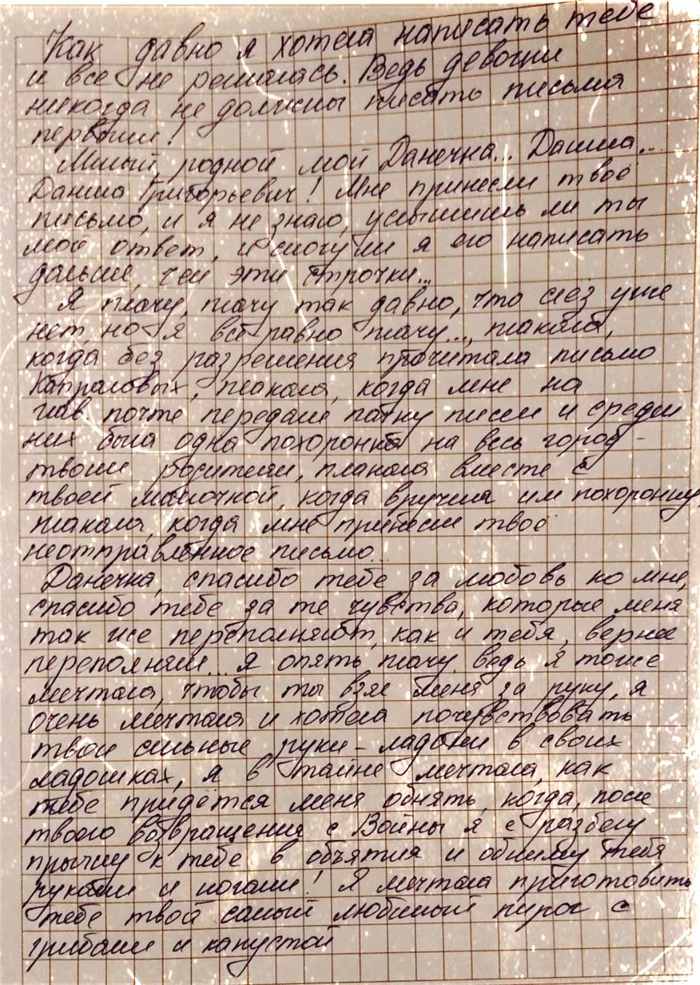 Как давно я хотела написать тебе
и всё не решалась. Ведь девочки
никогда не должны писать письма
первыми!
Милый, родной мой Данечка... Данила...
Данила Григорьевич! Мне принесли твоё
письмо, и я не знаю, услышишь ли ты
мой ответ, и смогу ли я его написать
дальше, чем эти строчки...
Я плачу, плачу так давно, что слёз уже
нет, но я всё равно плачу..., плакала,
когда без разрешения прочитала письмо
Капраловых, плакала, когда мне на
глав почте передали пачку писем и среди
них была одна похоронка на весь город -
твоим родителям, плакала вместе с
твоей мамочкой, когда вручила им похоронку,
плакала, когда мне принесли твоё
неотправленное письмо...
Данечка, спасибо тебе за любовь ко мне,
спасибо тебе за те чувства, которые меня
так же переполняют, как и тебя, вернее
переполняли... Я опять плачу ведь я тоже
мечтала, чтобы ты взял меня за руку, я
очень мечтала и хотела почувствовать
твои сильные руки - ладони в своих
ладошках, я в тайне мечтала, как
тебе придётся меня обнять, когда, после
твоего возвращения с Войны я с разбегу
прыгну к тебе в объятия и обниму тебя
руками и ногами! Я мечтала приготовить
тебе твой самый любимый пирог с
грибами и капустой